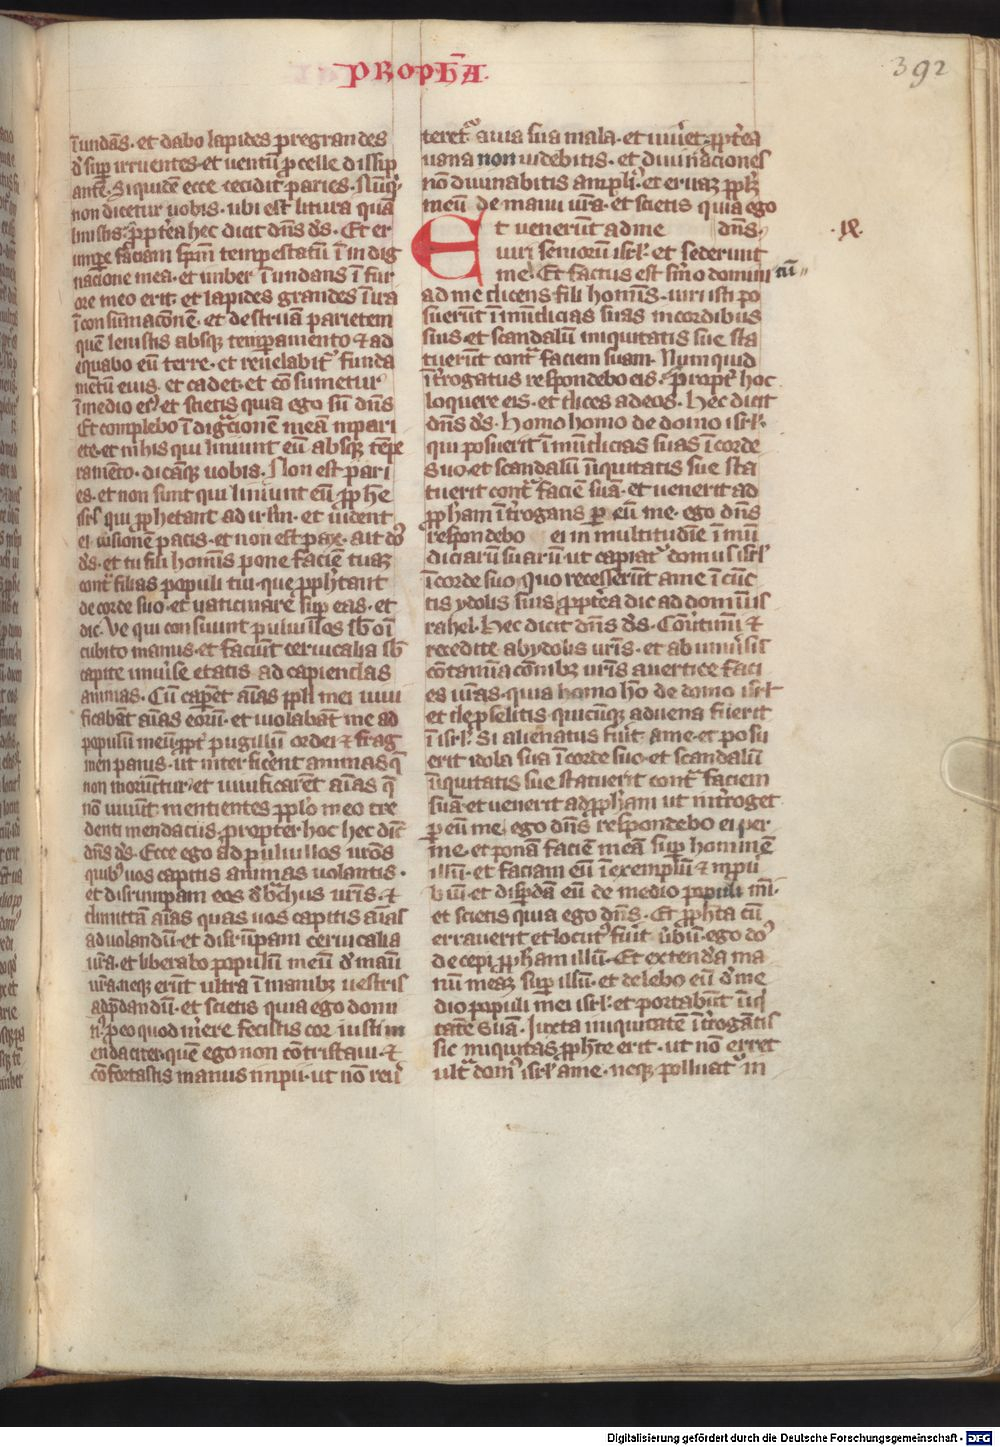 PROPhA
392
īundās. et dabo lapides pregrandes
đ sup irruentes et ventū pcelle dissip
antē. Siquidē ecce cecidit paries. Nūq̢
non dicetur uobis. ubi est litura quā
linistis. ppťea hec dicit dn̄s đs. Et er
umpe faciam spm̄ tempestatū ī indig
nacione mea. et imber īundans ī fur
ore meo erit. et lapides grandes ī ira
ī consūmacōnē. et destruā parietem
quē lenistis absq̢ temperamento ⁊ ad
equabo eū terre. et reuelabit᷒ funda
metū eius. et cadet. et cōsumetur
ī medio ei᷒ et scietis quia ego sū dn̄s
Et complebo īdignacionē meā in pari
ete. et in his qui liniunt eū absq̢ tēpe
ramēto. dicāq̢ uobis. Non est pari
es. et non sunt qui liniunt eū. pphe
isrl̄ qui pphetant ad irlm̄. et uident
ei uisionē pacis. et non est pax. ait do᷒
đs. et tu fili homīs pone faciē tuaꝫ
contᵃ filias populi tui. que pphetant
de corde suo. et uaticinare sup eas. et
dic. Ve qui consuunt puluillos sb̄ oī
cubito manus. et faciūt ceruicalia sb̄
capite uniuīse etatis ad capiendas
animas. Cū capent aīas ppli mei uiui
ficabāt aīas eorū. et uiolabāt me ad
populū meū. ppt᷒ pugillū ordei ⁊ frag
men panis. ut interficent animas q̄
non moriūtur. et uiuificarēt aīas q̄
nō uiuūt. mentientes pplo meo cre
denti mendaciis. propter hoc hec dic̄
dn̄s đs. Ecce ego ad puluillos urōs
quib᷒ uos capitis animas uolantis.
et disrumpam eos đ bᵃchiis uris. ⁊
dimittā aīas quas uos capitis aīas
ad uolandū. et disrūpam ceruicalia
urā. et liberabo populū meū đ manū
urā. neq̢ erūt ultra ī manibꝫ uestris
ad pdandū. et scietis quia ego domi
n᷒. p eo quod merere fecistis cor iusti m
endaciter. quē ego non cōtristaui. ⁊
cōfortastis manus impii. ut nō reū
teret᷒ a uia sua mala. et uiu᷒et. ppťea
uana non uidebitis. et diuinaciones
nō diuinabitis ampli᷒. et eruaꝫ pplꝫ
meū de manu ura. et scietis quia ego
Et venerūt ad me dn̄s.
uiri seniorū isrl̄. et sederunt
me. Et factus est smo domini cū
.IX.
ad me dicens. fili homīs. uiri isti po
suerūt īmūdicias suas in cordibus
suis. et scandalū iniquitatis sue sta
tuerūt contᵃ faciem suam. Numquid
īt᷒rogatus respondebo eis. Propt᷒ hoc
loquere eis. et dices ad eos. Hec dicit
dn̄s đs. Homo homo de domo isrl̄.
qui posuerit īmūdicias suas ī corde
suo. et scandalū īiquitatis sue sta
tuerit contᵃ faciē suā. et uenerit ad
ppham īt᷒rogans p eū me. ego dn̄s
respondebo ei in multitudīe īmū
diciarū suarū. ut capiat᷒ domus isrl̄
ī corde suo. quo recesserūt a me ī cūc
tis ydolis suis. ppťea dic ad domū is
rahel. Hec dicit dn̄s đs. Cōuertimī ⁊
recedite ab ydolis uris. et ab uniu᷒sis
cōtamīacōnibꝫ uris auertite faci
es uras. quia homo hō de domo isrl̄
et de pselitis. quicūq̢ aduena fuerit
ī isrl̄. Si alienatus fuit a me. et posu
erit idola sua ī corde suo. et scandalū
īiquitatis sue statuerit contᵃ faciem
suā. et uenerit ad ppham ut int᷒roget
p eū me. ego dn̄s respondebo ei per
me. et ponā faciē meā sup hominē
illū. et faciam eū ī exemplū ⁊ inpu᷒
biū. et disp᷒dā eū de medio populi mī.
et scietis quia ego dn̄s. Et ppheta cū
errauerit et locut᷒ fuit ūbū. ego do᷒
decepi ppham illū. Et extendā ma
nū meaꝫ sup illū. et delebo eū đ me
dio populi mei isrl̄. et portabūt īiq
tatē suā. Juxta iniquitatē īt᷒rogātis
sic iniquitas pphete erit. ut nō erret
ultᵃ dom᷒ isrl̄ a me. neq̢ polluat᷒ in
Digitalisierung gefördert durch die Deutsche Forschungsgemeinschaft - DFG